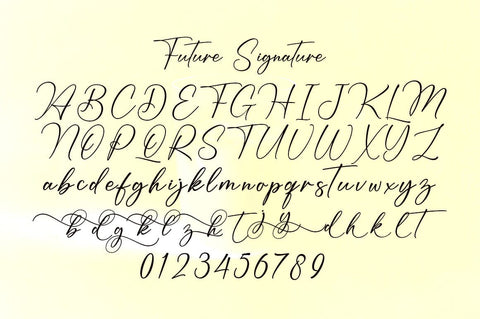 Future Signature
ABCDEFGHIJKLM
NOPQRSTUVWXYZ
abcdefghijklmnopqrstuvwxyz
bdgklzhtjydhklt
0123456789